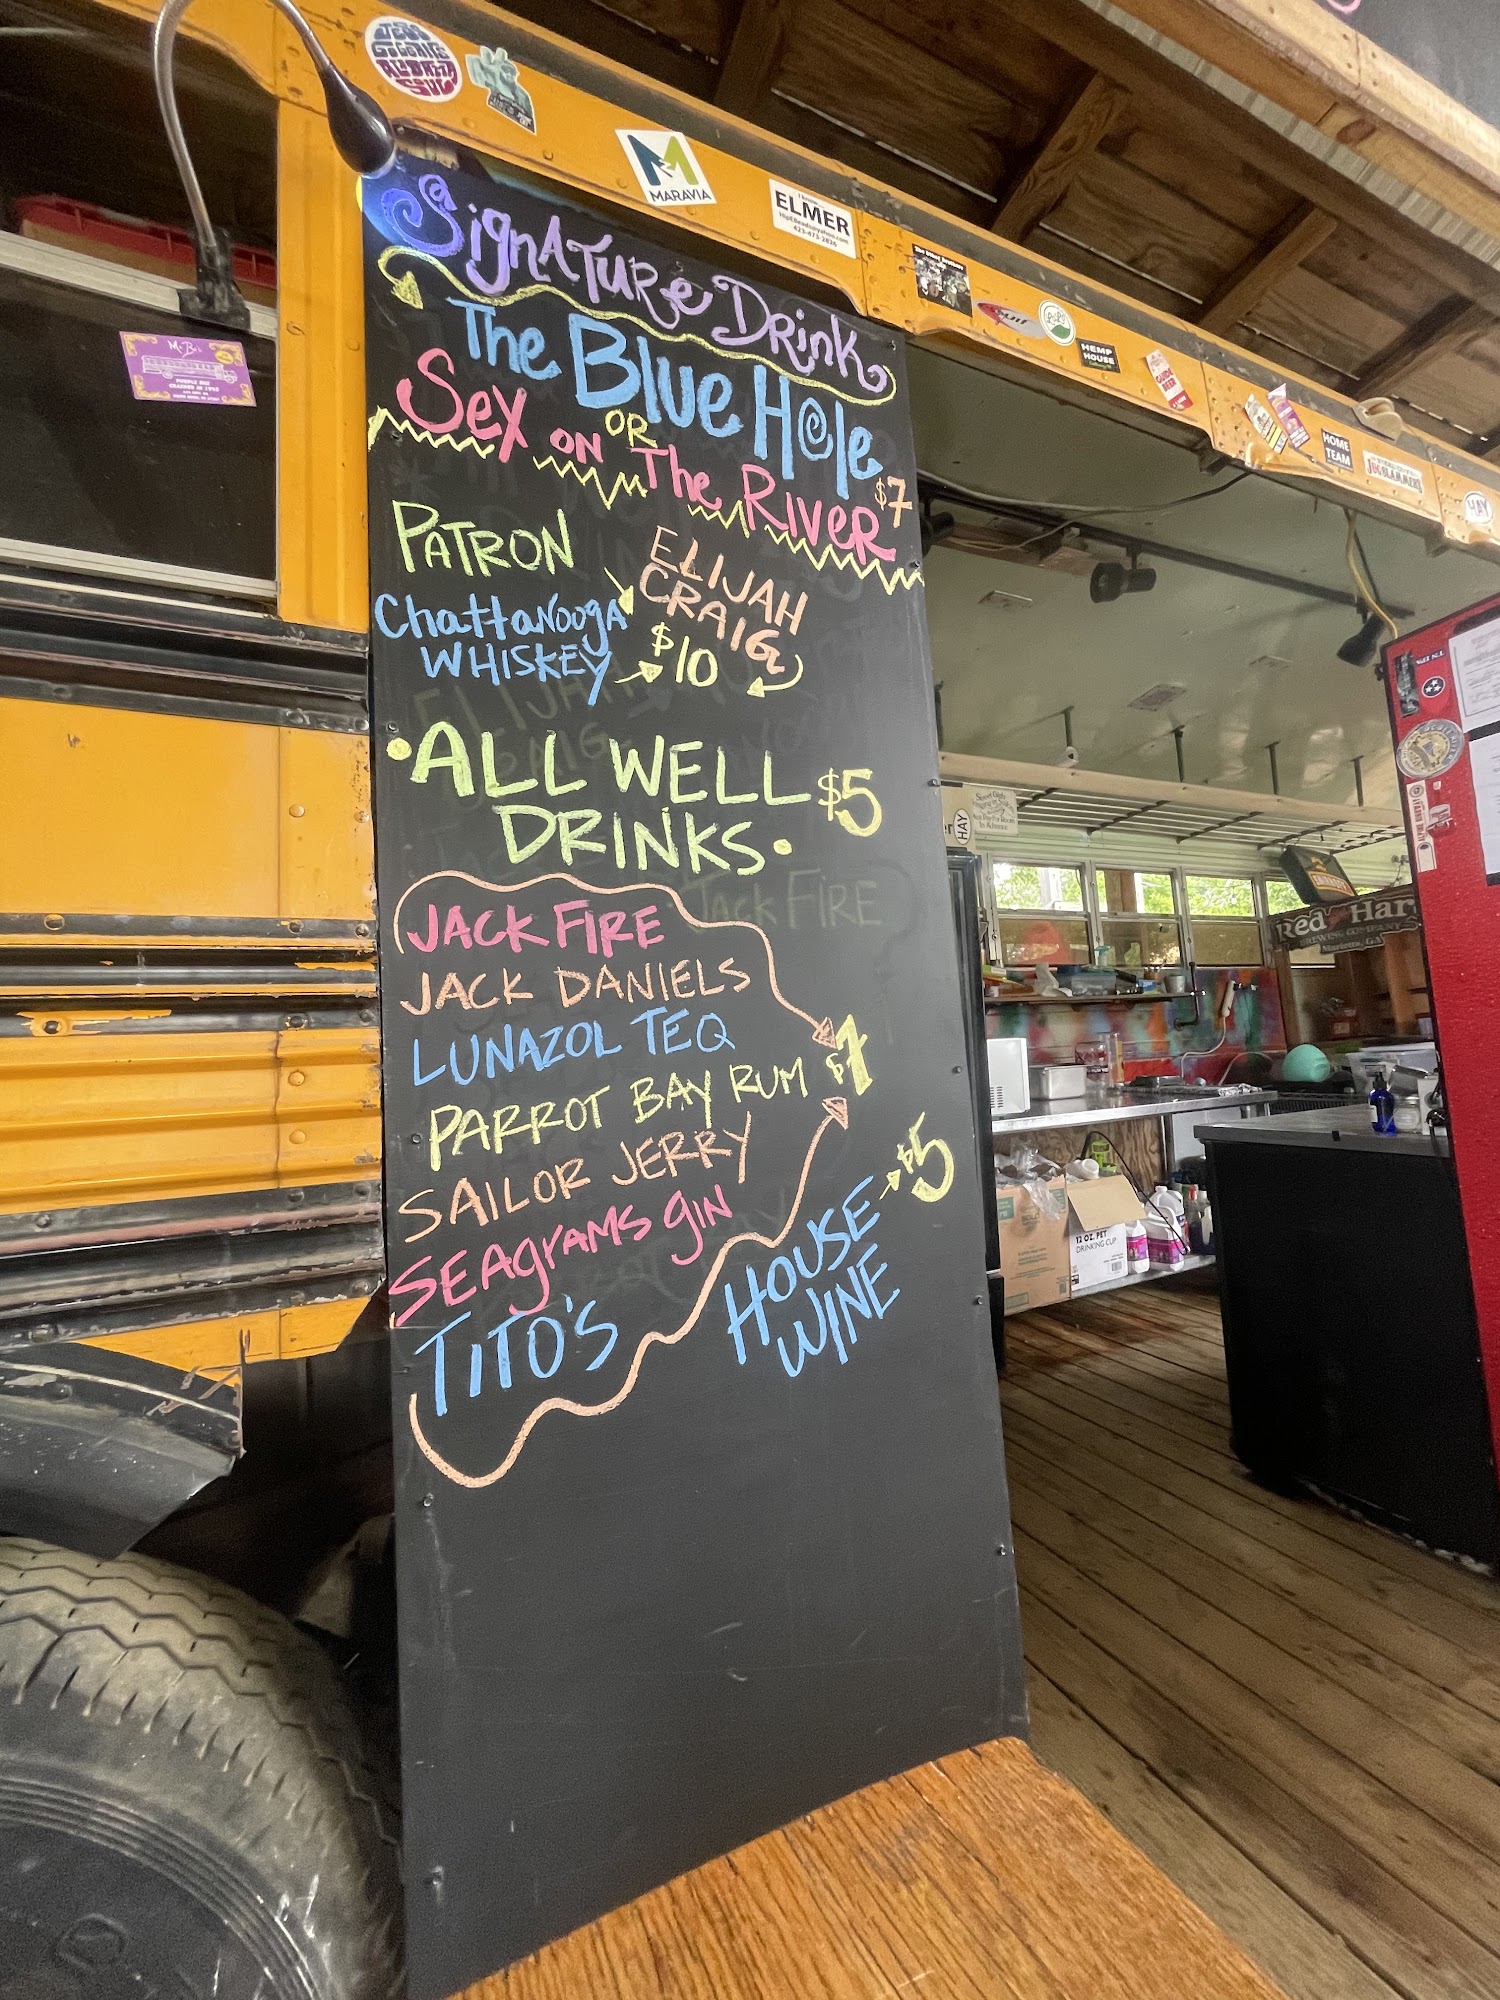 Signature Drink
The Blue Hole
OR
Sex on The River
$7
PATRON
ELIJAH
CRAIG
Chattanooga
WHISKEY
$10
ALL WELL
DRINKS
$5
JACK FIRE
JACK DANIELS
LUNAZOL TEQ
PARROT BAY RUM
$7
SAILOR JERRY
SEAgRAMS gIN
TITO'S
HOUSE
WINE
$5
Jack FIRE
MARAVIA
ELMER
423-473-2826
HEMP
HOUSE
HOME
TEAM
JOGSLAMMERS
HAY
HAY
Red Har
BREWING COMPANY
Marietta, GA
12 OZ. PET
DRINKING CUP